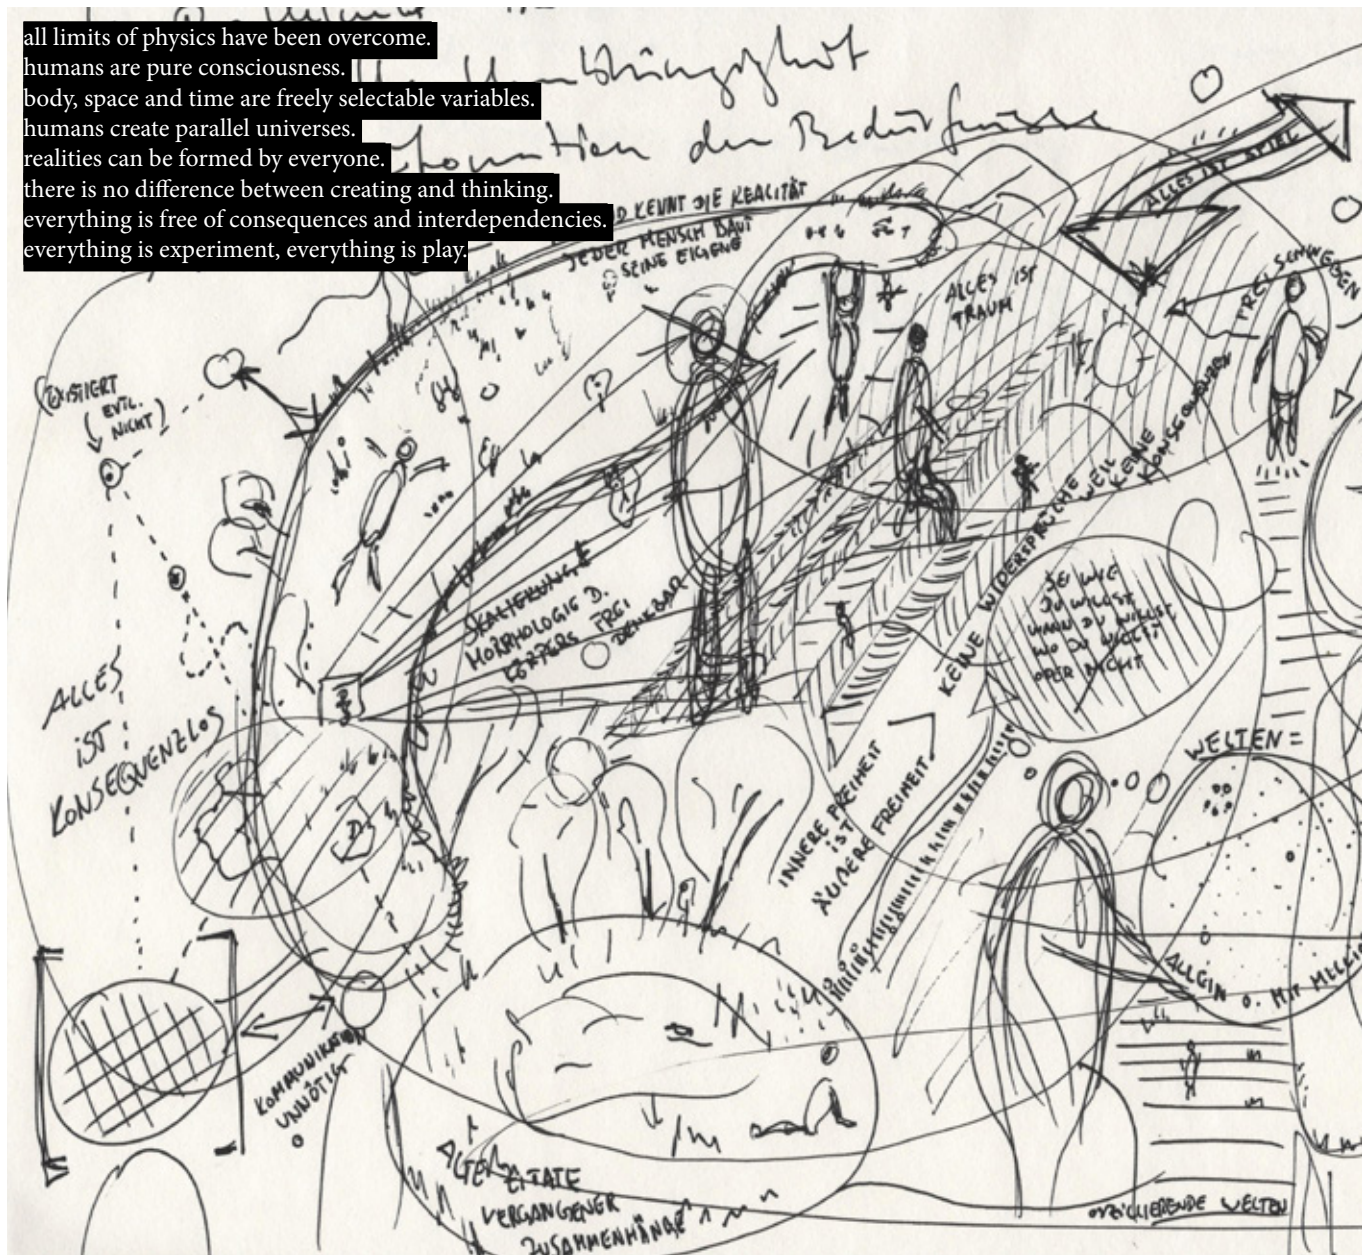 all limits of physics have been overcome.
humans are pure consciousness.
body, space and time are freely selectable variables.
humans create parallel universes.
realities can be formed by everyone.
there is no difference between creating and thinking.
everything is free of consequences and interdependencies.
everything is experiment, everything is play.
der Bedürfnisse
KENNT DIE REALITÄT
JEDER MENSCH BAUT
SEINE EIGENE
ALLES IST SPIEL
ALLES IST
TRAUM
FREI SCHWEBEN
EXISTIERT
(EVTL.
NICHT)
SKALIERUNG &
MORPHOLOGIE D.
KÖRPERS FREI
DENKBAR
KEINE WIDERSPRÜCHE WEIL
KEINE
KONSEQUENZEN
SEI WIE
DU WILLST
WANN DU WILLST
WO DU WILLST
ODER NICHT
ALLES
IST
KONSEQUENZLOS
INNERE FREIHEIT
IST
ÄUßERE FREIHEIT
WELTEN =
ALLEIN O. MIT
KOMMUNIKATION
UNNÖTIG
VERGANGENER
ZUSAMMENHÄNGE
WELTEN